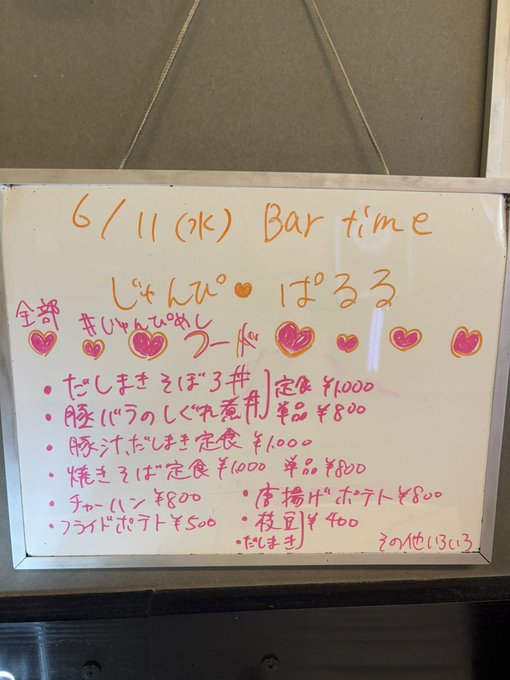 6/11(水) Bar time
じゃんぴ♥ぱるる
全部 #じゅんぴめし
フード
・だしまきそぼろ丼 定食¥1,000
・豚バラのしぐれ煮丼 単品¥800
・豚汁、だしまき定食 ¥1,000
・焼きそば定食¥1,000 単品¥800
・チャーハン¥800
・唐揚げポテト¥800
・フライドポテト¥500
・枝豆 ¥400
・だしまき
その他いろいろ